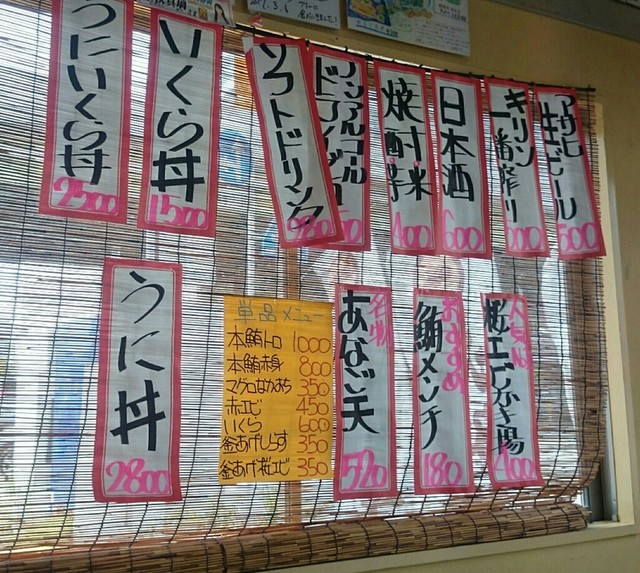 うにいくら丼
2500
いくら丼
1500
ソフトドリンク
ノンアルコール
焼酎
米
芋
400
日本酒
600
キリン
一番搾り
アサヒ
生ビール
500
うに丼
2800
単品メニュー
本鮪トロ 1000
本鮪赤身 800
マグロなかおち 350
赤エビ 450
いくら 600
釜あげしらす 350
釜あげ桜エビ 350
名物
あなご天
520
おすすめ
鮪メンチ
180
人気No.1
桜エビかき揚
400